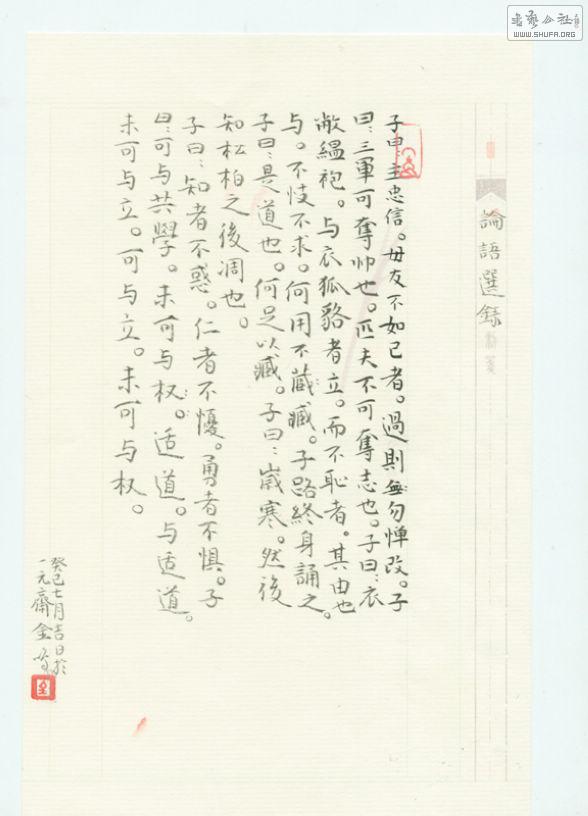 書藝公社
WWW.SHUFA.ORG
論語選錄
子曰：主忠信。毋友不如己者。過則無勿憚改。子
曰：三軍可奪帅也。匹夫不可奪志也。子曰：衣
敝縕袍。与衣狐貉者立。而不恥者。其由也
与。不忮不求。何用不蔵臧。子路終身誦之。
子曰：是道也。何足以臧。子曰：歲寒。然後
知松柏之後凋也。
子曰：知者不惑。仁者不懮。勇者不惧。子
曰：可与共學。未可与权。适道。与适道。
未可与立。可与立。未可与权。
癸巳七月吉日於
一元齋金